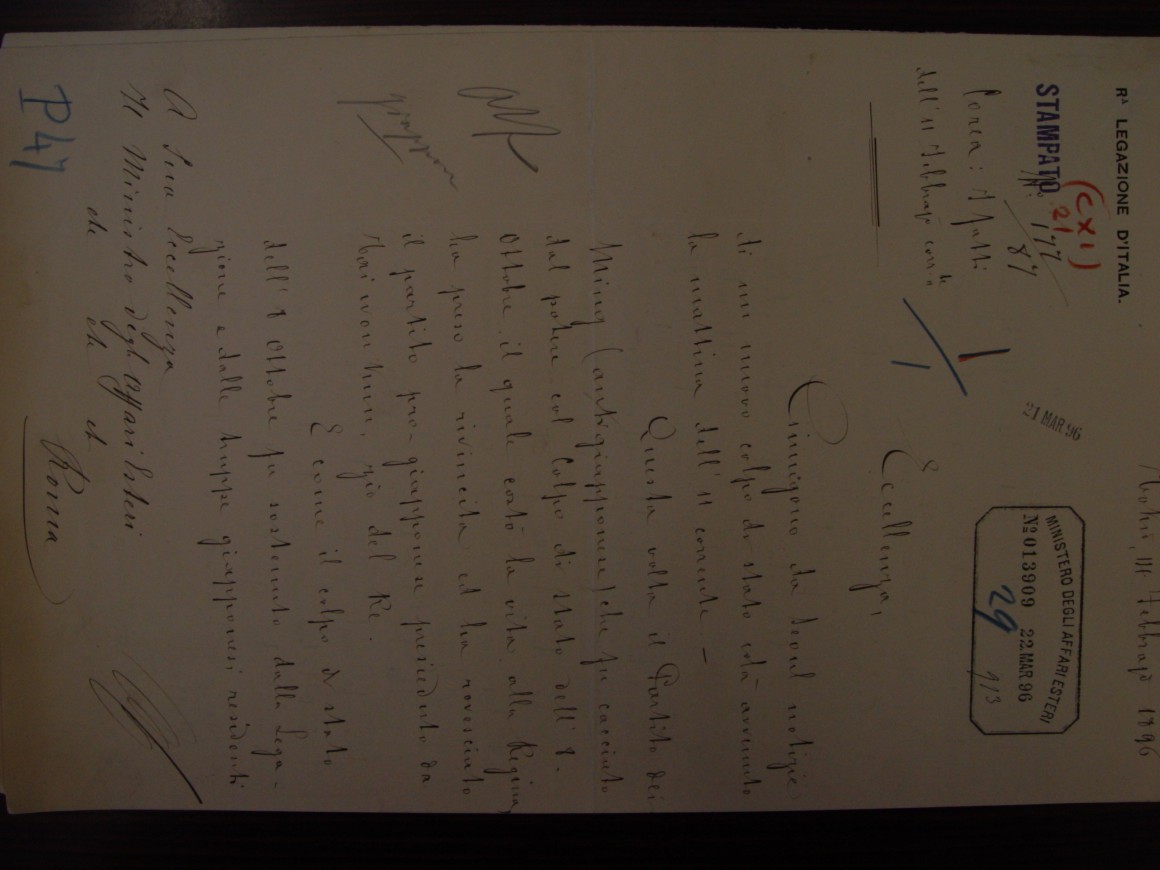 Rᴬ LEGAZIONE D'ITALIA.
Febbrajo 1896
(CXI)
STAMPATO
21
Nº 177
87
21 MAR 96
MINISTERO DEGLI AFFARI ESTERI
Nº 013909 22 MAR 96
29
913
Corea: I fatti
dell'11 Febbrajo corr.te
Eccellenza,
Giungono da Seoul notizie
di un nuovo colpo di stato colà avvenuto
la mattina dell'11 corrente –
Questa volta il Partito dei
Ming (antigiapponese) che fu cacciato
dal potere col colpo di stato dell'8.
Ottobre, il quale costò la vita alla Regina,
ha preso la rivincita ed ha rovesciato
il partito pro-giapponese presieduto da
zio del Re.
E come il colpo di stato
dell'8 Ottobre fu sostenuto dalla Lega-
zione e dalle truppe giapponesi residenti
Giappone
A Sua Eccellenza
Il Ministro degli Affari Esteri
etc etc etc
Roma
P47